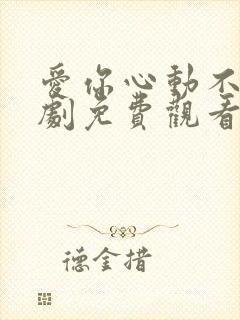 愛你心動不
劇免費觀看
德金措